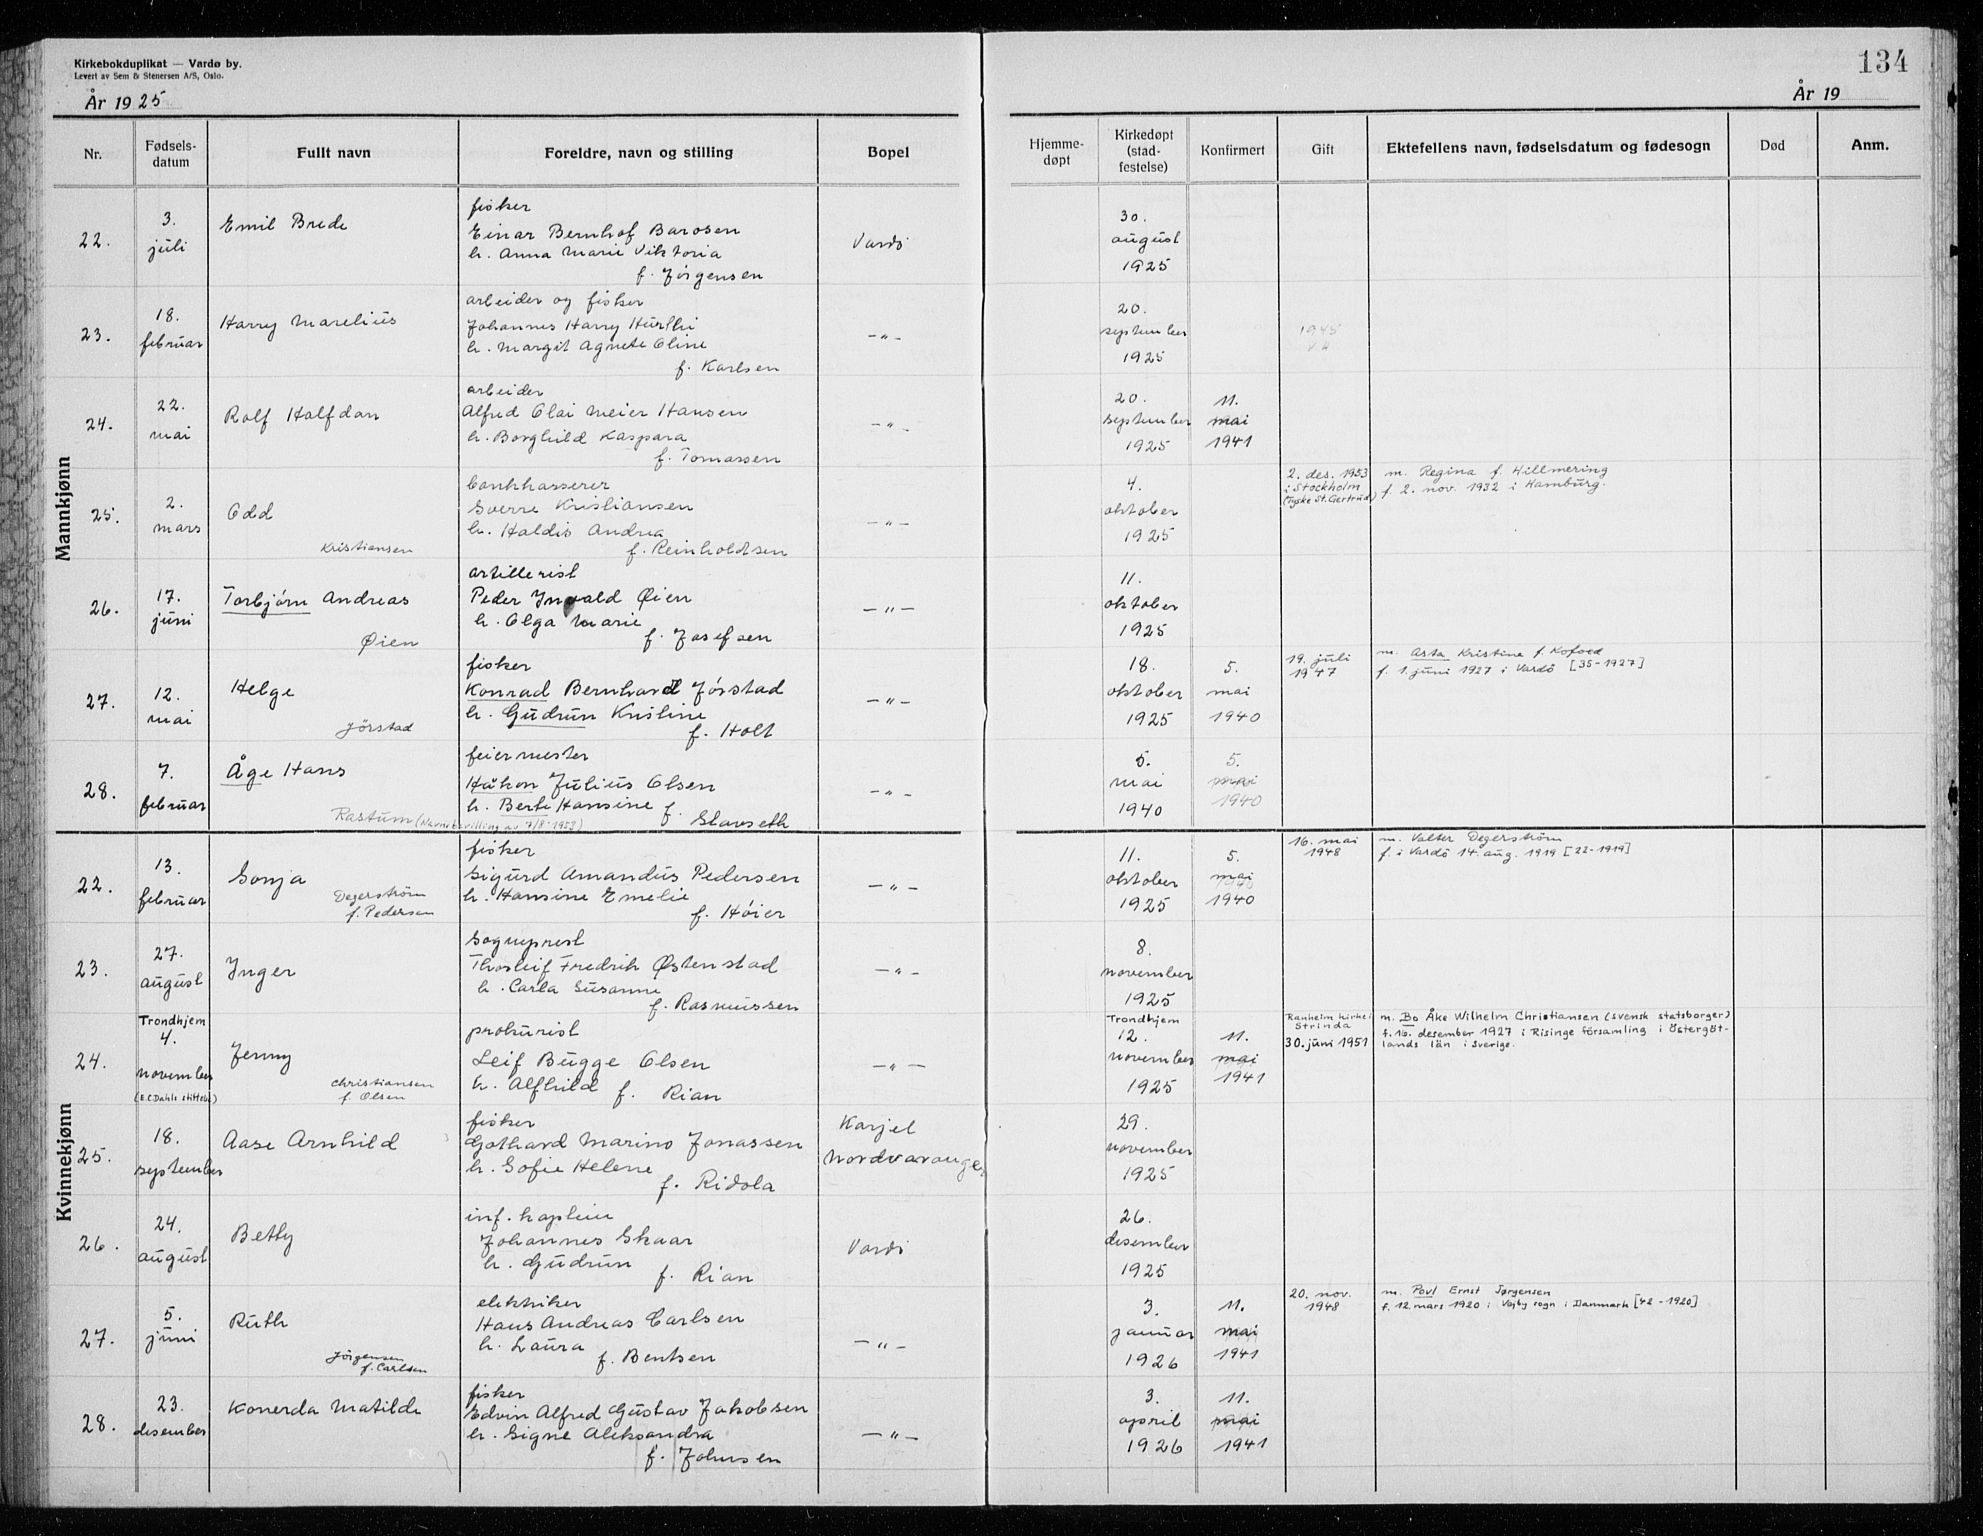 Kirkebokduplikat — Vardø by.
Levert av Sem & Stenersen A/S, Oslo.
134
År 1925
År 19
Nr.
Fødsels-
datum
Fullt navn
Foreldre, navn og stilling
Bopel
Hjemme-
døpt
Kirkedøpt
(stad-
festelse)
Konfirmert
Gift
Ektefellens navn, fødselsdatum og fødesogn
Død
Anm.
Mannkjønn
22.
3.
juli
Emil Brede
fisker
Einar Bernhof Barosen
h. Anna Marie Viktoria
f. Jørgensen
Vardö
30.
august
1925
23.
18.
februar
Harry Marelius
arbeider og fisker
Johannes Harry
h. Margit Agnete Oline
f. Karlsen
— " —
20.
september
1925
1945
24.
22.
mai
Rolf Halfdan
arbeider
Alfred Olai Meier Hansen
h. Borghild Kaspara
f. Tomassen
— " —
20.
september
1925
11.
mai
1941
25.
2.
mars
Odd
Kristiansen
bankkasserer
Sverre Kristiansen
h. Haldis Andrea
f. Reinholdtsen
— " —
4.
oktober
1925
2. des. 1953
i Stockholm
(Tyske St. Gertrud)
m. Regina f. Hillmering
f. 2. nov. 1932 i Hamburg.
26.
17.
juni
Torbjørn Andreas
Øien
artillerist
Peder Ingvald Øien
h. Olga Marie
f. Josefsen
— " —
11.
oktober
1925
27.
12.
mai
Helge
Jörstad
fisker
Konrad Bernhard Jörstad
h. Gudrun Kristine
f. Holt
— " —
18.
oktober
1925
5.
mai
1940
19. juli
1947
m. Asta Kristine f. Kofoed
f. 1. juni 1927 i Vardö [35-1927]
28.
7.
februar
Åge Hans
Rastum (Navnebevilling av 7/8-1953)
feiermester
Håkon Julius Olsen
h. Berte Hansine f.
Slavseth
— " —
5.
mai
1940
5.
mai
1940
Kvinnekjønn
22.
13.
februar
Sonja
Degerström
f. Pedersen
fisker
Sigurd Amandus Pedersen
h. Hansine Emelie
f. Höier
— " —
11.
oktober
1925
5.
mai
1940
1940
16. mai
1948
m. Valter Degerström
f. i Vardö 14. aug. 1919 [22-1919]
23.
27.
august
Inger
Sogneprest
Thorleif Fredrik Østenstad
h. Carla Susanne
f. Rasmussen
— " —
8.
november
1925
24.
Trondhjem
4.
november
(E.C. Dahls stiftelse)
Jenny
Christiansen
f. Olsen
prokurist
Leif Bugge Olsen
h. Alfhild f. Rian
— " —
Trondhjem
12.
november
1925
11.
mai
1941
Ranheim kirke i
Strinda
30. juni 1951
m. Bo Åke Wilhelm Christiansen (svensk statsborger)
f. 16. desember 1927 i Risinge församling i Östergöt-
lands län i Sverige.
25.
18.
september
Aase Arnhild
fisker
Gothard Marino Jonassen
h. Sofie Helene
f. Ridola
Karjel
Nordvaranger
29.
november
1925
26.
24.
august
Betty
inf. kaptein
Johannes Skaar
h. Gudrun
f. Rian
Vardö
26.
desember
1925
27.
5.
juni
Ruth
Jörgensen
f. Carlsen
elektriker
Hans Andreas Carlsen
h. Laura
f. Bentsen
— " —
3.
januar
1926
11.
mai
1941
20. nov.
1948
m. Povl Ernst Jørgensen
f. 12. mars 1920 i Vejby sogn i Danmark [42-1920]
28.
23.
desember
Konerda Matilde
fisker
Edvin Alfred Gustav Jakobsen
h. Signe Aleksandra
f. Johnsen
— " —
3.
april
1926
11.
mai
1941